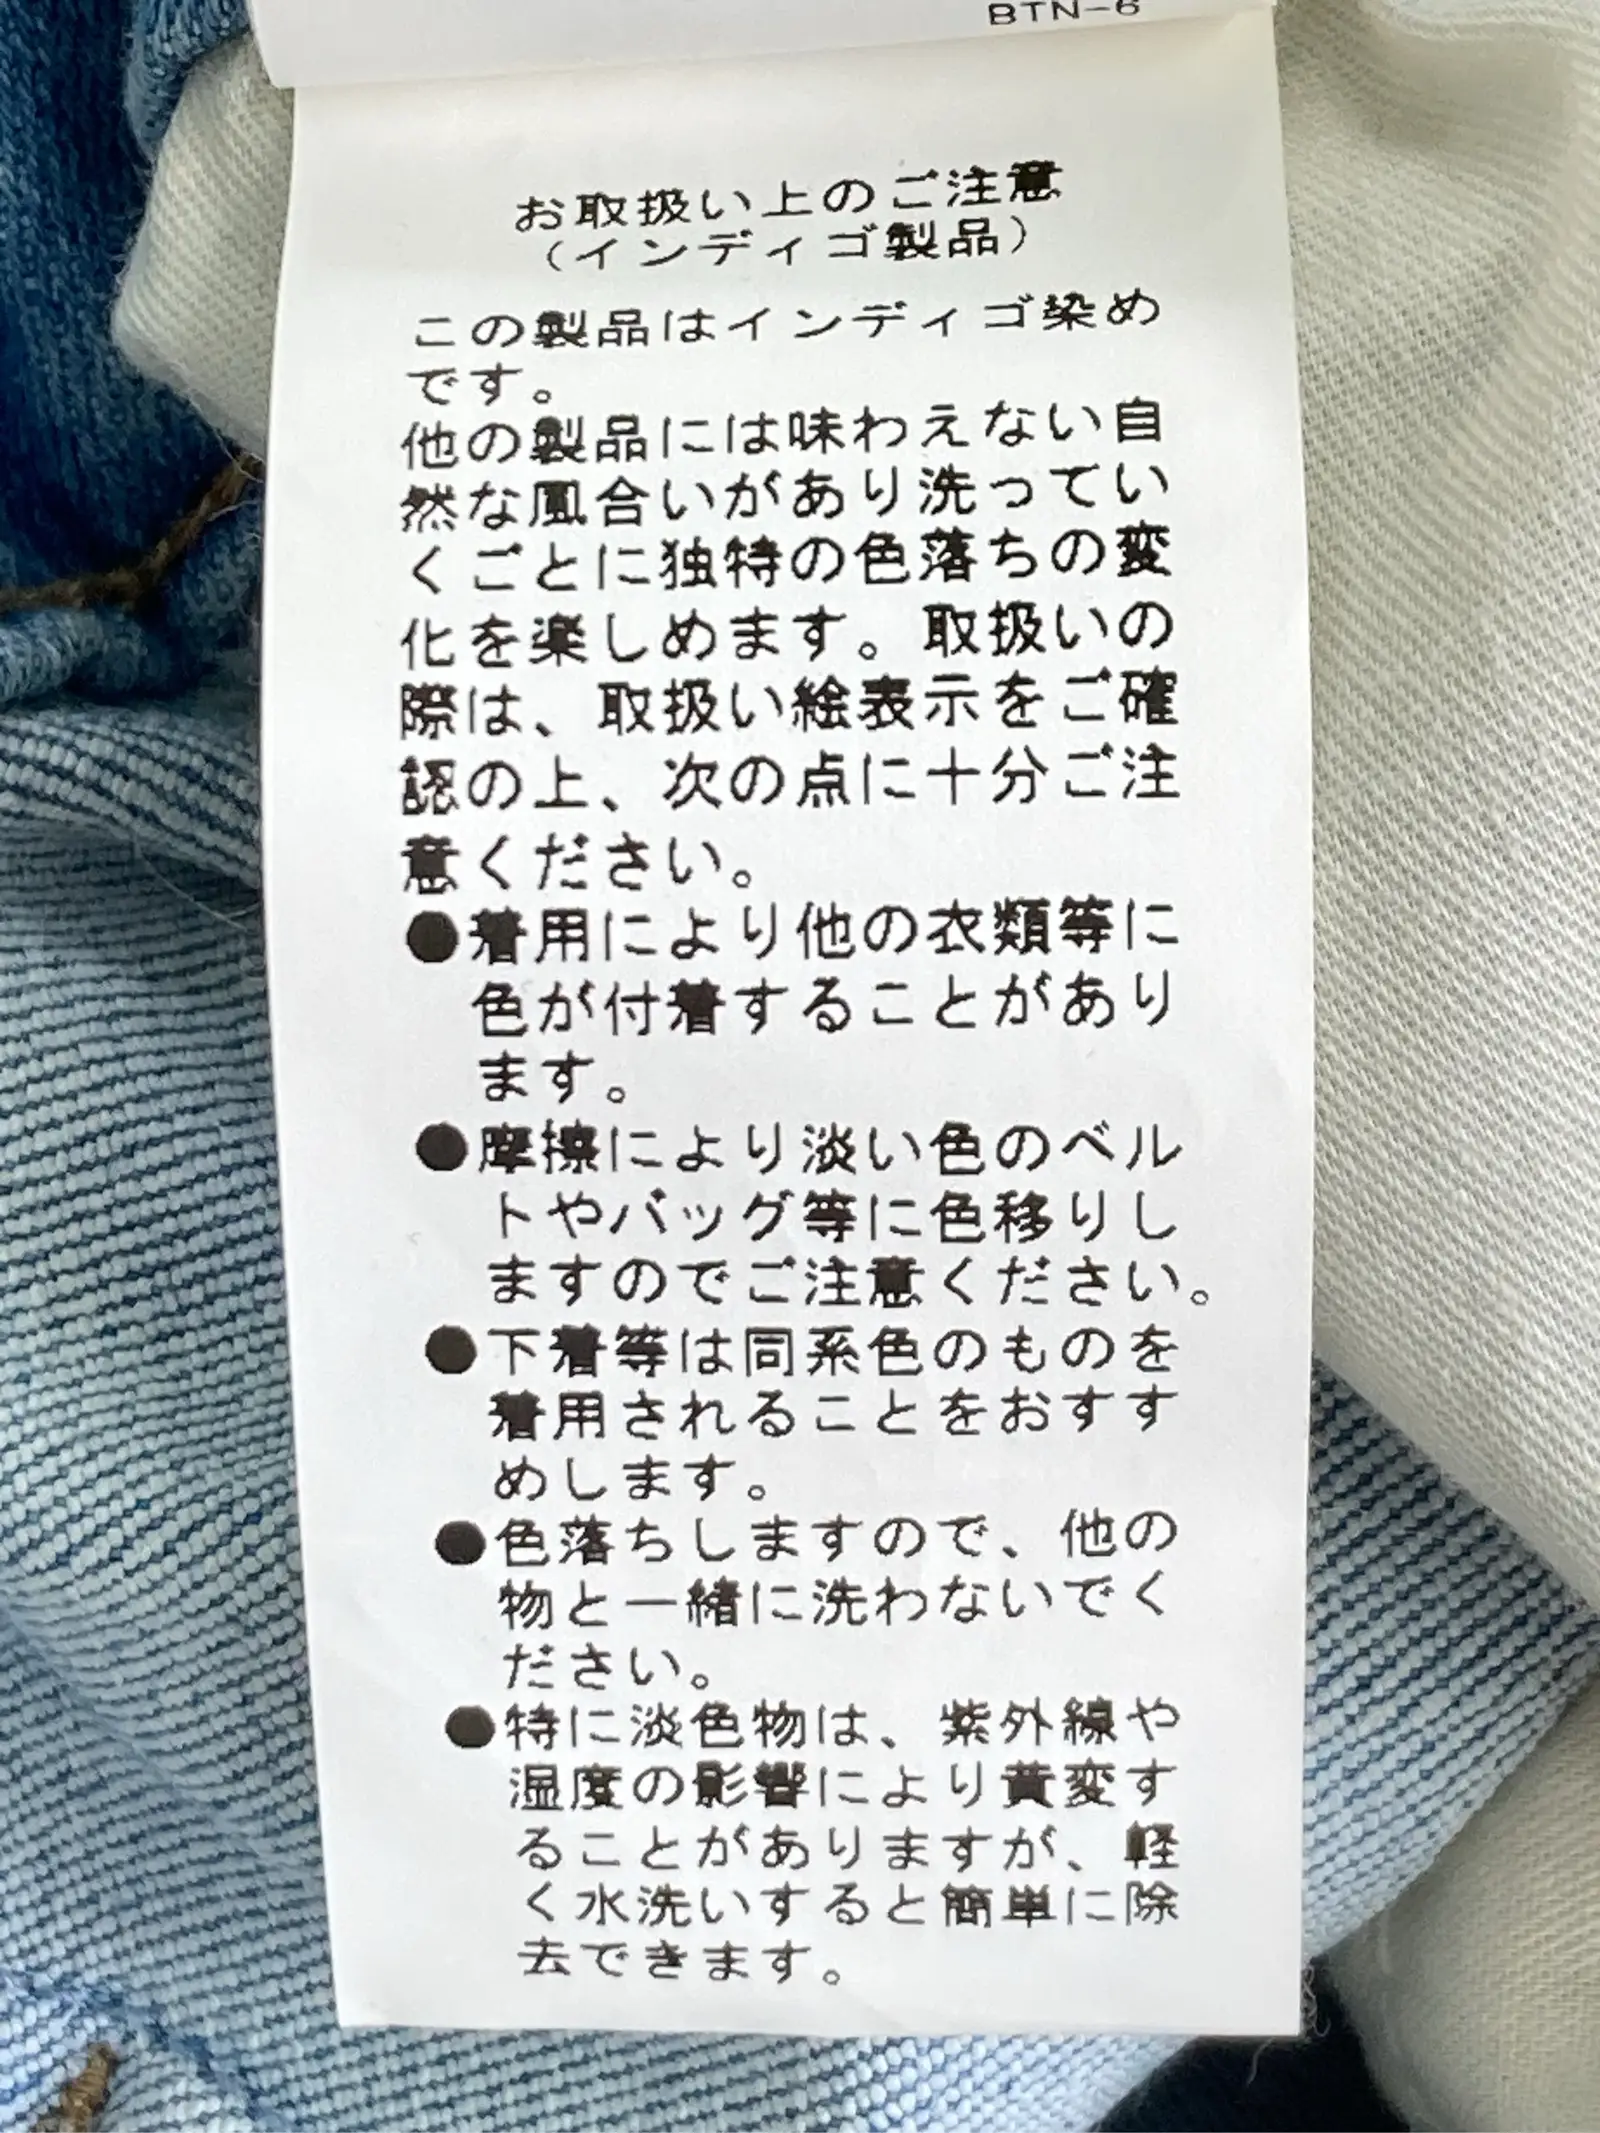 BTN-6
お取扱い上のご注意
（インディゴ製品）
この製品はインディゴ染め
です。
他の製品には味わえない自
然な風合いがあり洗ってい
くごとに独特の色落ちの変
化を楽しめます。取扱いの
際は、取扱い絵表示をご確
認の上、次の点に十分ご注
意ください。
●着用により他の衣類等に
色が付着することがあり
ます。
●摩擦により淡い色のベル
トやバッグ等に色移りし
ますのでご注意ください。
●下着等は同系色のものを
着用されることをおすす
めします。
●色落ちしますので、他の
物と一緒に洗わないでく
ださい。
●特に淡色物は、紫外線や
湿度の影響により黄変す
ることがありますが、軽
く水洗いすると簡単に除
去できます。